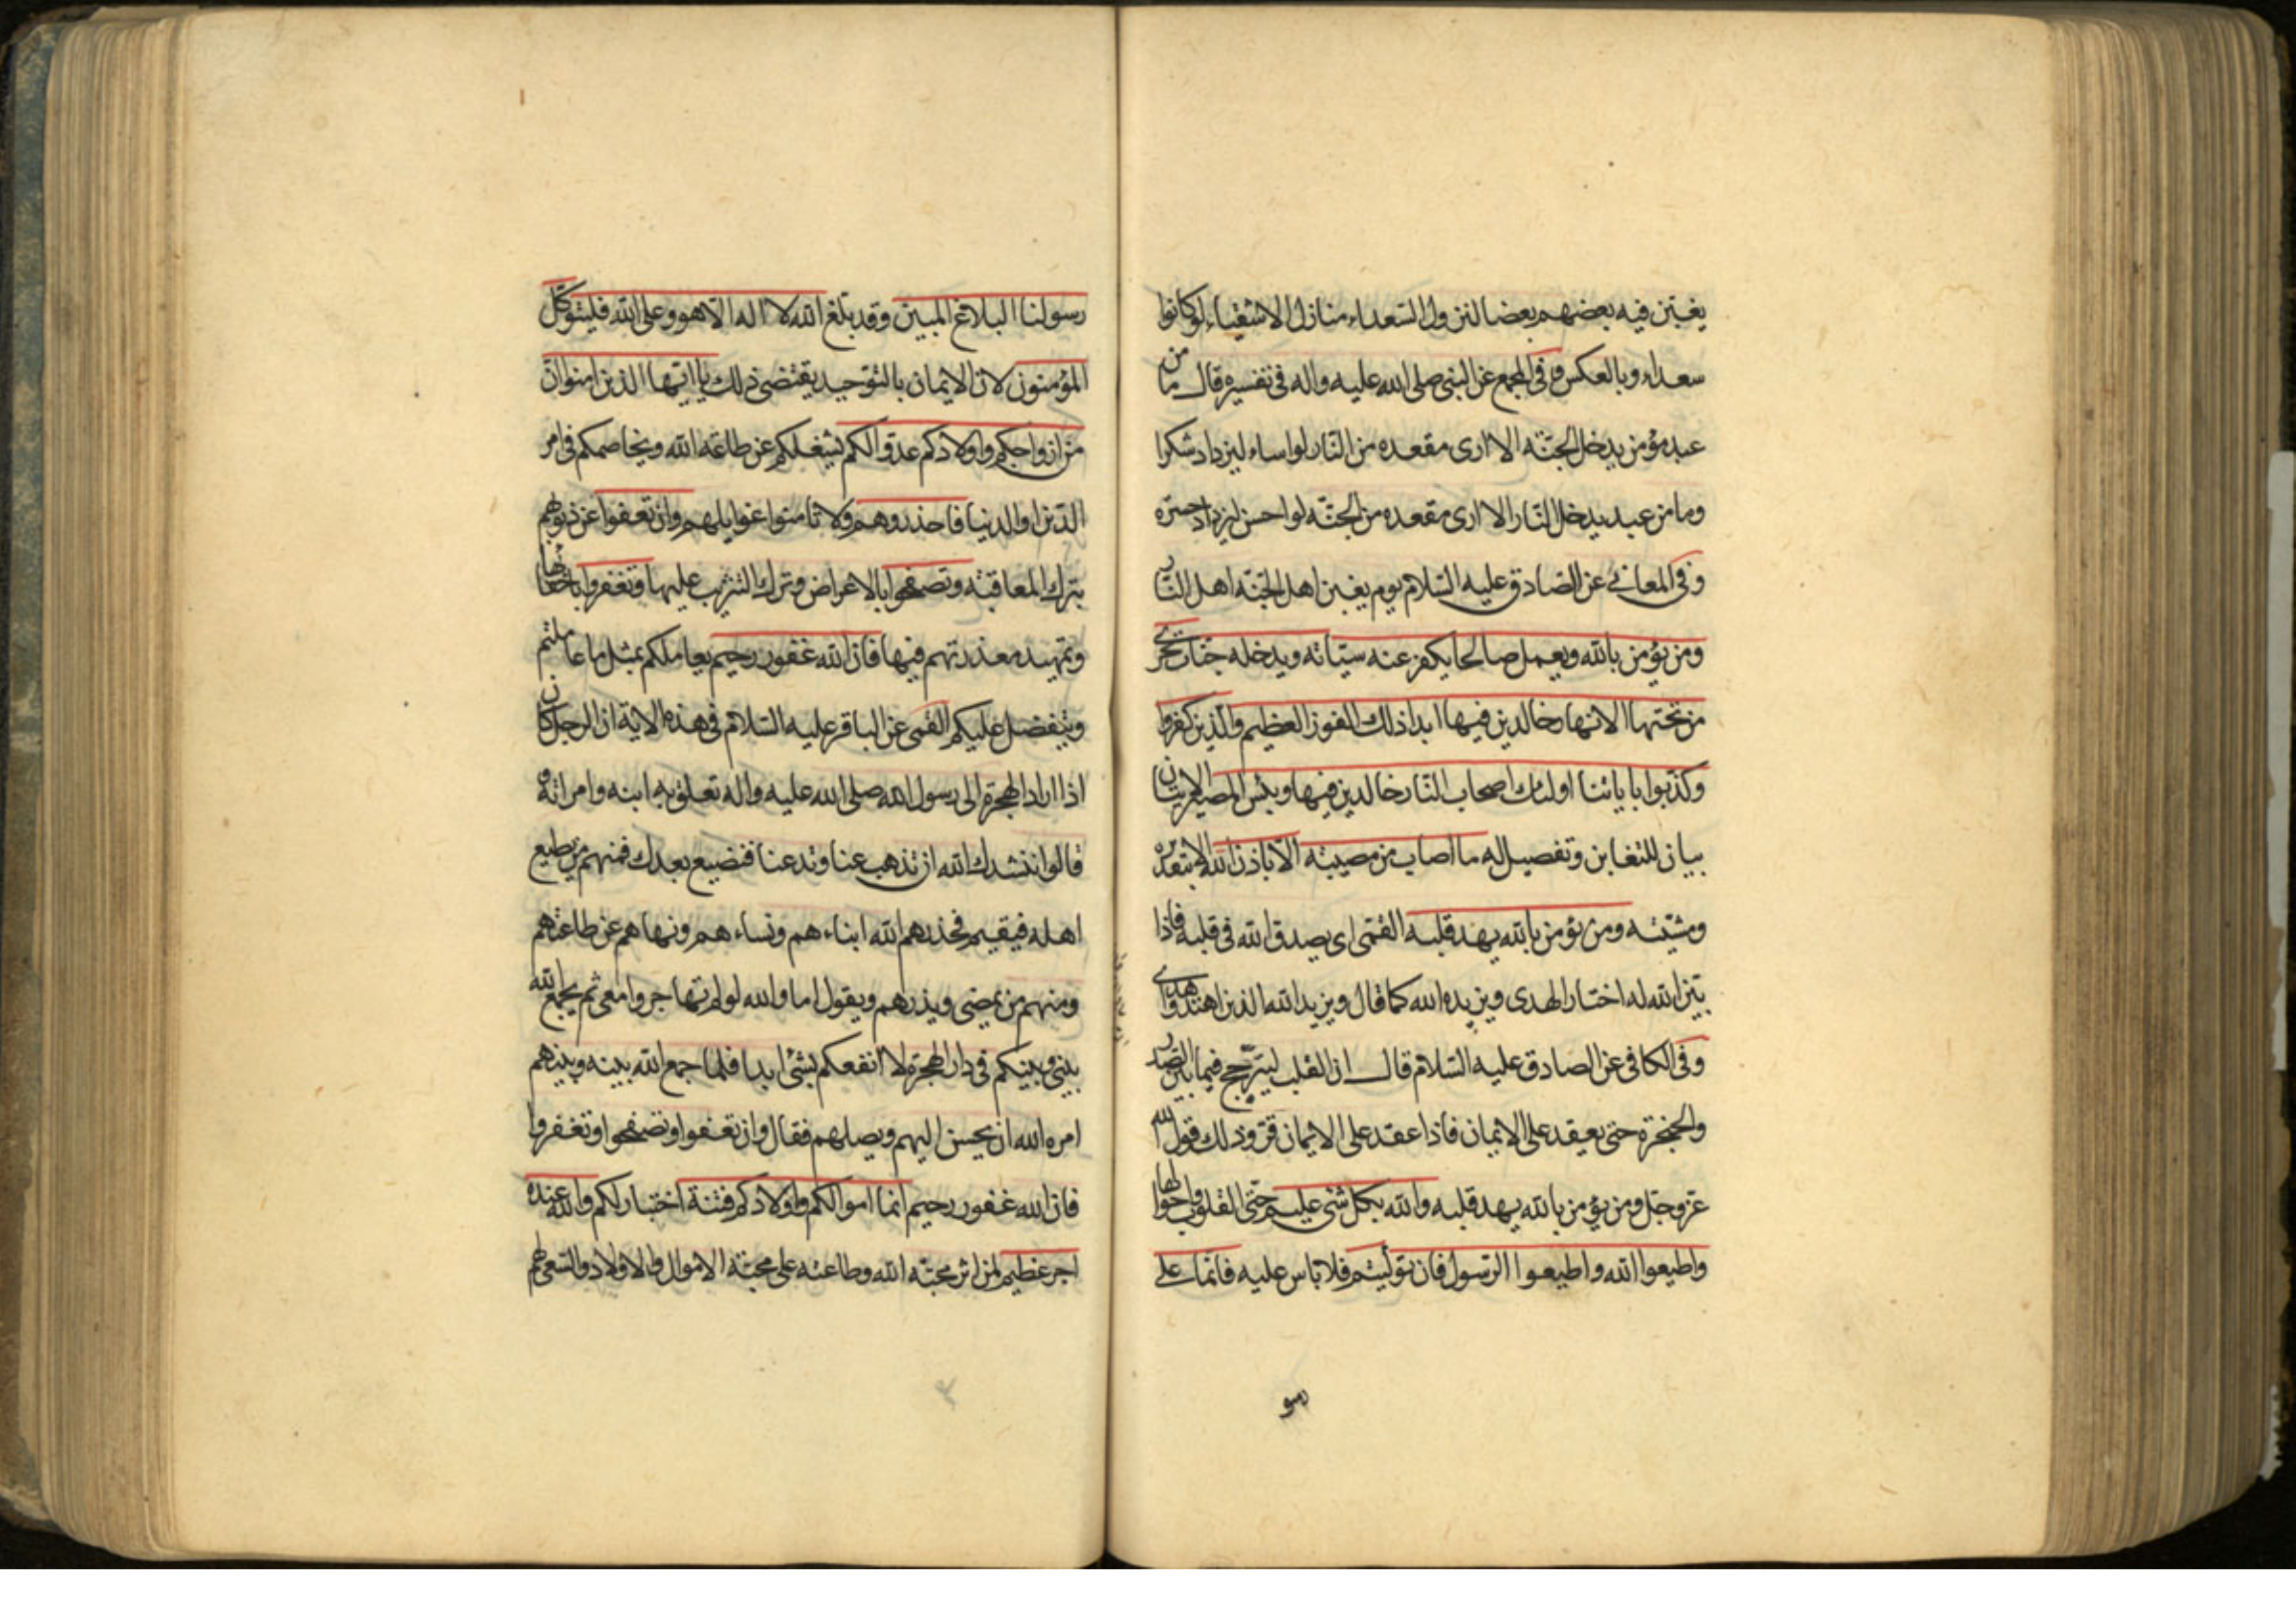 يغبن فيه بعضهم بعضا لنزول السعداء منازل الاشقياء لو كانوا
سعداء وبالعكس وفي المجمع عن النبي صلى الله عليه واله في تفسيره قال ما من
عبد مؤمن يدخل الجنة الا ارى مقعده من النار لو اساء ليزداد شكرا
وما من عبد يدخل النار الا ارى مقعده من الجنة لو احسن ليزداد حسرة
وفي المعاني عن الصادق عليه السلام يوم يغبن اهل الجنة اهل النار
ومن يؤمن بالله ويعمل صالحا يكفر عنه سيئاته ويدخله جنات تجري
من تحتها الانهار خالدين فيها ابدا ذلك الفوز العظيم والذين كفروا
وكذبوا باياتنا اولئك اصحاب النار خالدين فيها وبئس المصير الايتان
بيان للتغابن وتفصيل له ما اصاب من مصيبة الا باذن الله الا بتقديره
ومشيته ومن يؤمن بالله يهد قلبه القمي اي يصدق الله في قلبه فاذا
بين الله له اختار الهدى ويزيده الله كما قال ويزيد الله الذين اهتدوا هدى
وفي الكافي عن الصادق عليه السلام قال ان القلب ليترجح فيما بين الصدر
والحنجرة حتى يعقد على الايمان فاذا عقد على الايمان قر وذلك قول الله
عز وجل ومن يؤمن بالله يهد قلبه والله بكل شئ عليم حتى القلوب واحوالها
واطيعوا الله واطيعوا الرسول فان توليتم فلا باس عليه فانما على
رسو
رسولنا البلاغ المبين وقد بلغ الله لا اله الا هو وعلى الله فليتوكل
المؤمنون لان الايمان بالتوحيد يقتضي ذلك يا ايها الذين امنوا ان
من ازواجكم واولادكم عدوا لكم يشغلكم عن طاعة الله ويخاصمكم في امر
الدين او الدنيا فاحذروهم ولا تامنوا غوايلهم وان تعفوا عن ذنوبهم
بترك المعاقبة وتصفحوا بالاعراض وترك التثريب عليها وتغفروا باخفائها
وتمهيد معذرتهم فيها فان الله غفور رحيم يعاملكم بمثل ما عاملتم
ويتفضل عليكم القمي عن الباقر عليه السلام في هذه الاية ان الرجل كان
اذا اراد الهجرة الى رسول الله صلى الله عليه واله تعلق به ابنه وامراته و
قالوا ننشدك الله ان تذهب عنا وتدعنا فنضيع بعدك فمنهم من يطيع
اهله فيقيم فحذرهم الله ابناءهم ونساءهم ونهاهم عن طاعتهم
ومنهم من يمضي ويذرهم ويقول اما والله لو لم تهاجروا معي ثم يجمع الله
بيني وبينكم في دار الهجرة لا انفعكم بشئ ابدا فلما جمع الله بينه وبينهم
امره الله ان يحسن اليهم ويصلهم فقال وان تعفوا وتصفحوا وتغفروا
فان الله غفور رحيم انما اموالكم واولادكم فتنة اختبار لكم والله عنده
اجر عظيم لمن اثر محبة الله وطاعته على محبة الاموال والاولاد والسعي لهم